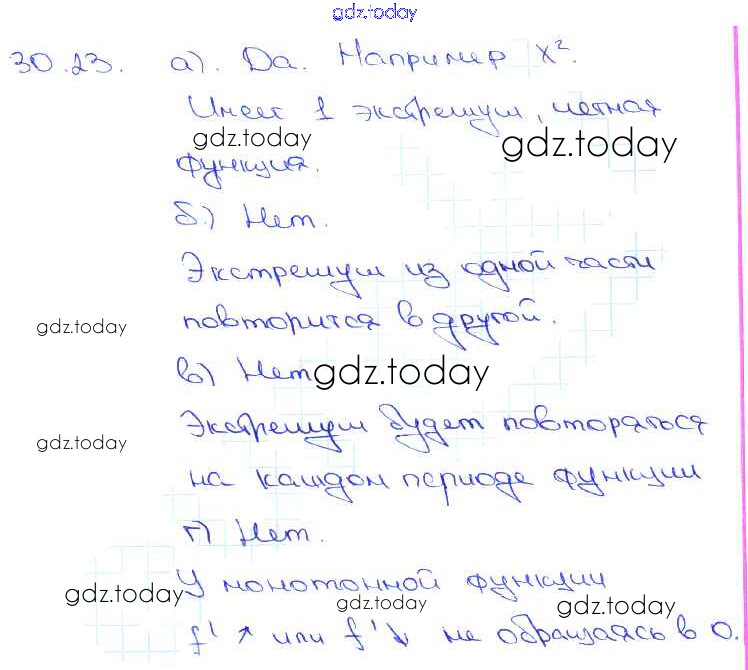 gdz.today
30.23. а). Да. Например x².
Имеет 1 экстремум, четная
gdz.today gdz.today
функция.
б.) Нет.
Экстремум из одной части
gdz.today повторится в другой.
в) Нет gdz.today
Экстремум будет повторяться
gdz.today
на каждом периоде функции
г) Нет.
У монотонной функции
gdz.today gdz.today gdz.today
f' ↗ или f' ↘ не обращаясь в 0.